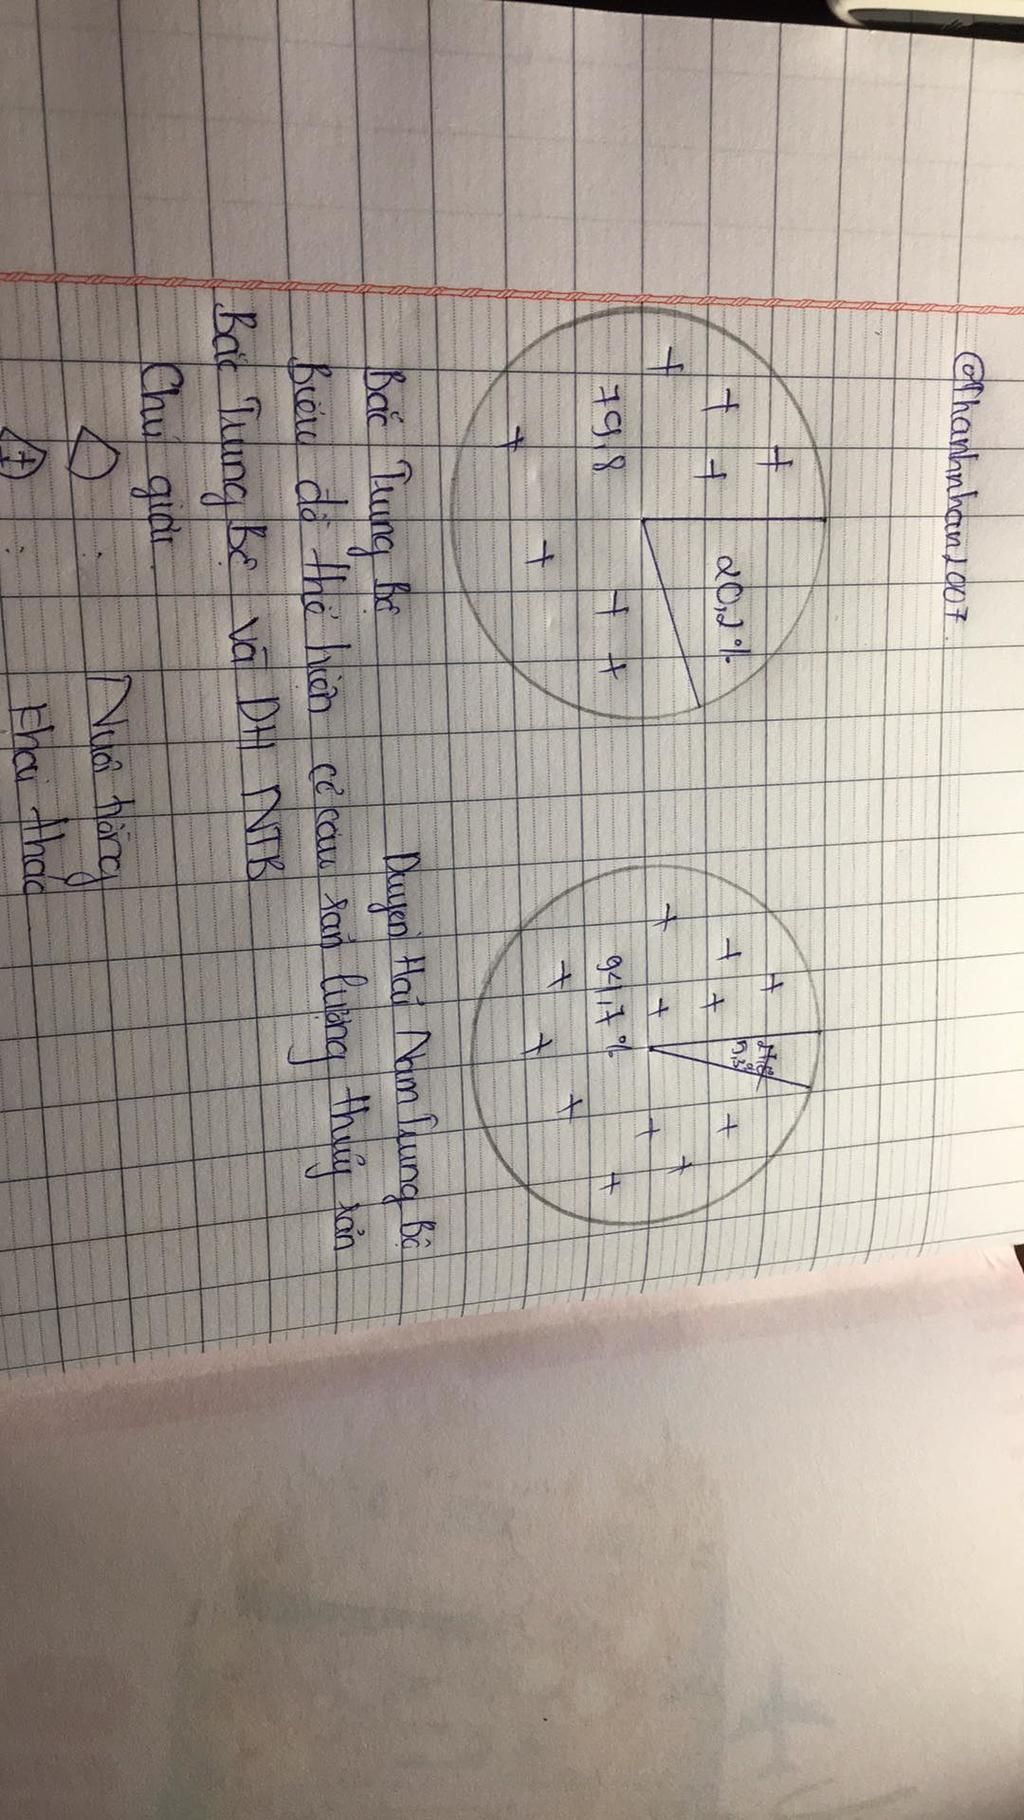 @thanhnhan2007
20,2%
79,8
5,3%
94,7%
Bắc Trung Bộ
Duyên Hải Nam Trung Bộ
Biểu đồ thể hiện cơ cấu sản lượng thủy sản
Bắc Trung Bộ và DH NTB
Chú giải
: Nuôi trồng
+ : Khai thác